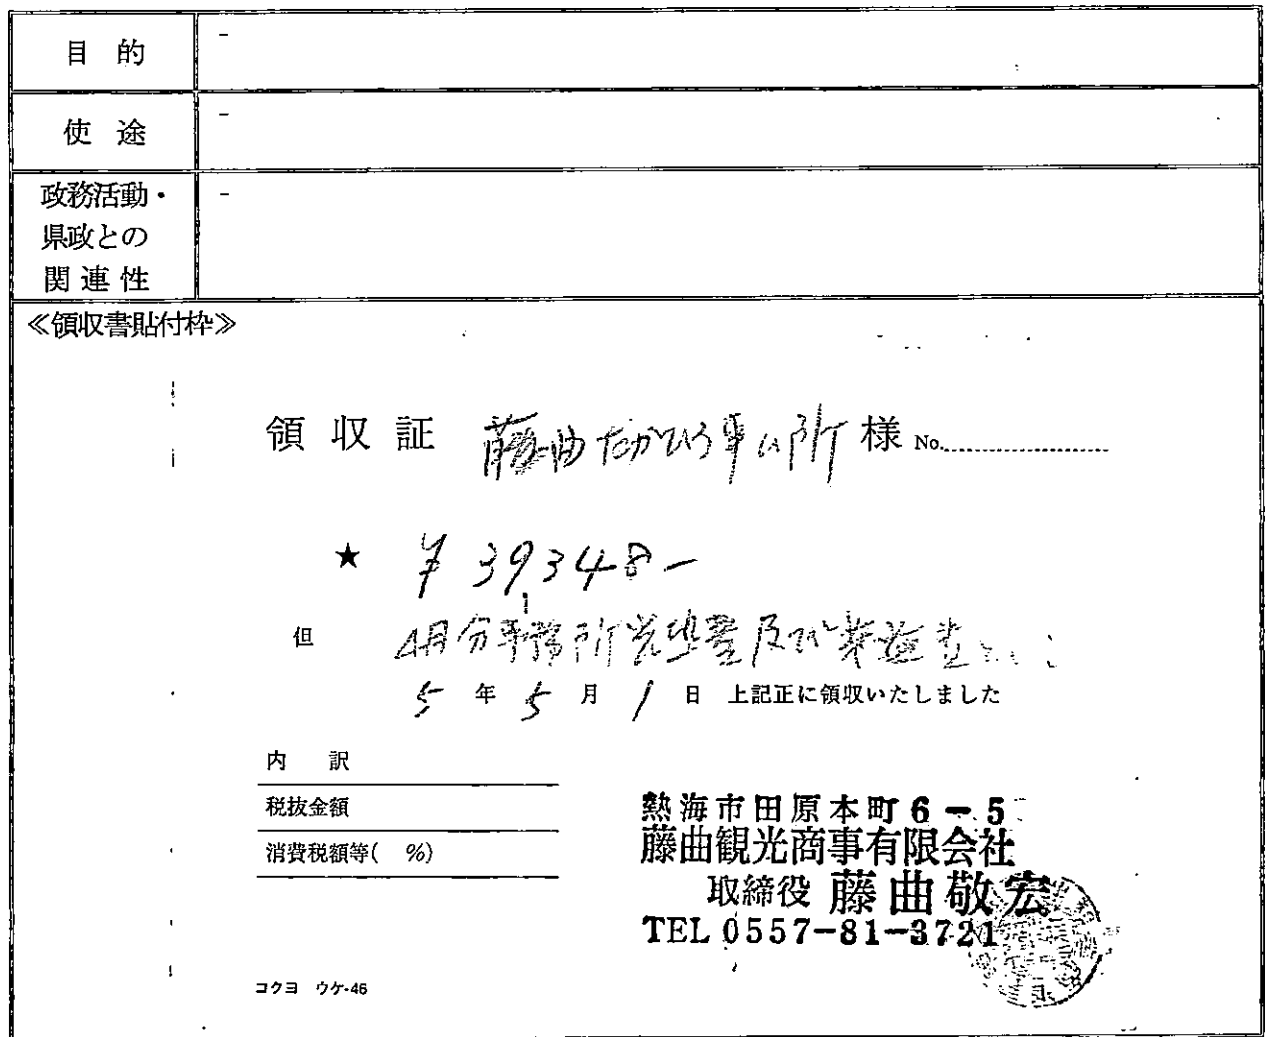 目的 -
使途 -
政務活動・ -
県政との
関連性
≪領収書貼付枠≫
領収証 藤曲たかひろ事ム所 様 No.
★ ¥39348-
但 4月分事務所光熱費及び
5年5月1日 上記正に領収いたしました
内訳
税抜金額
消費税額等( %)
熱海市田原本町6-5
藤曲観光商事有限会社
取締役 藤曲敬宏
TEL 0557-81-3721
コクヨ ウケ-46